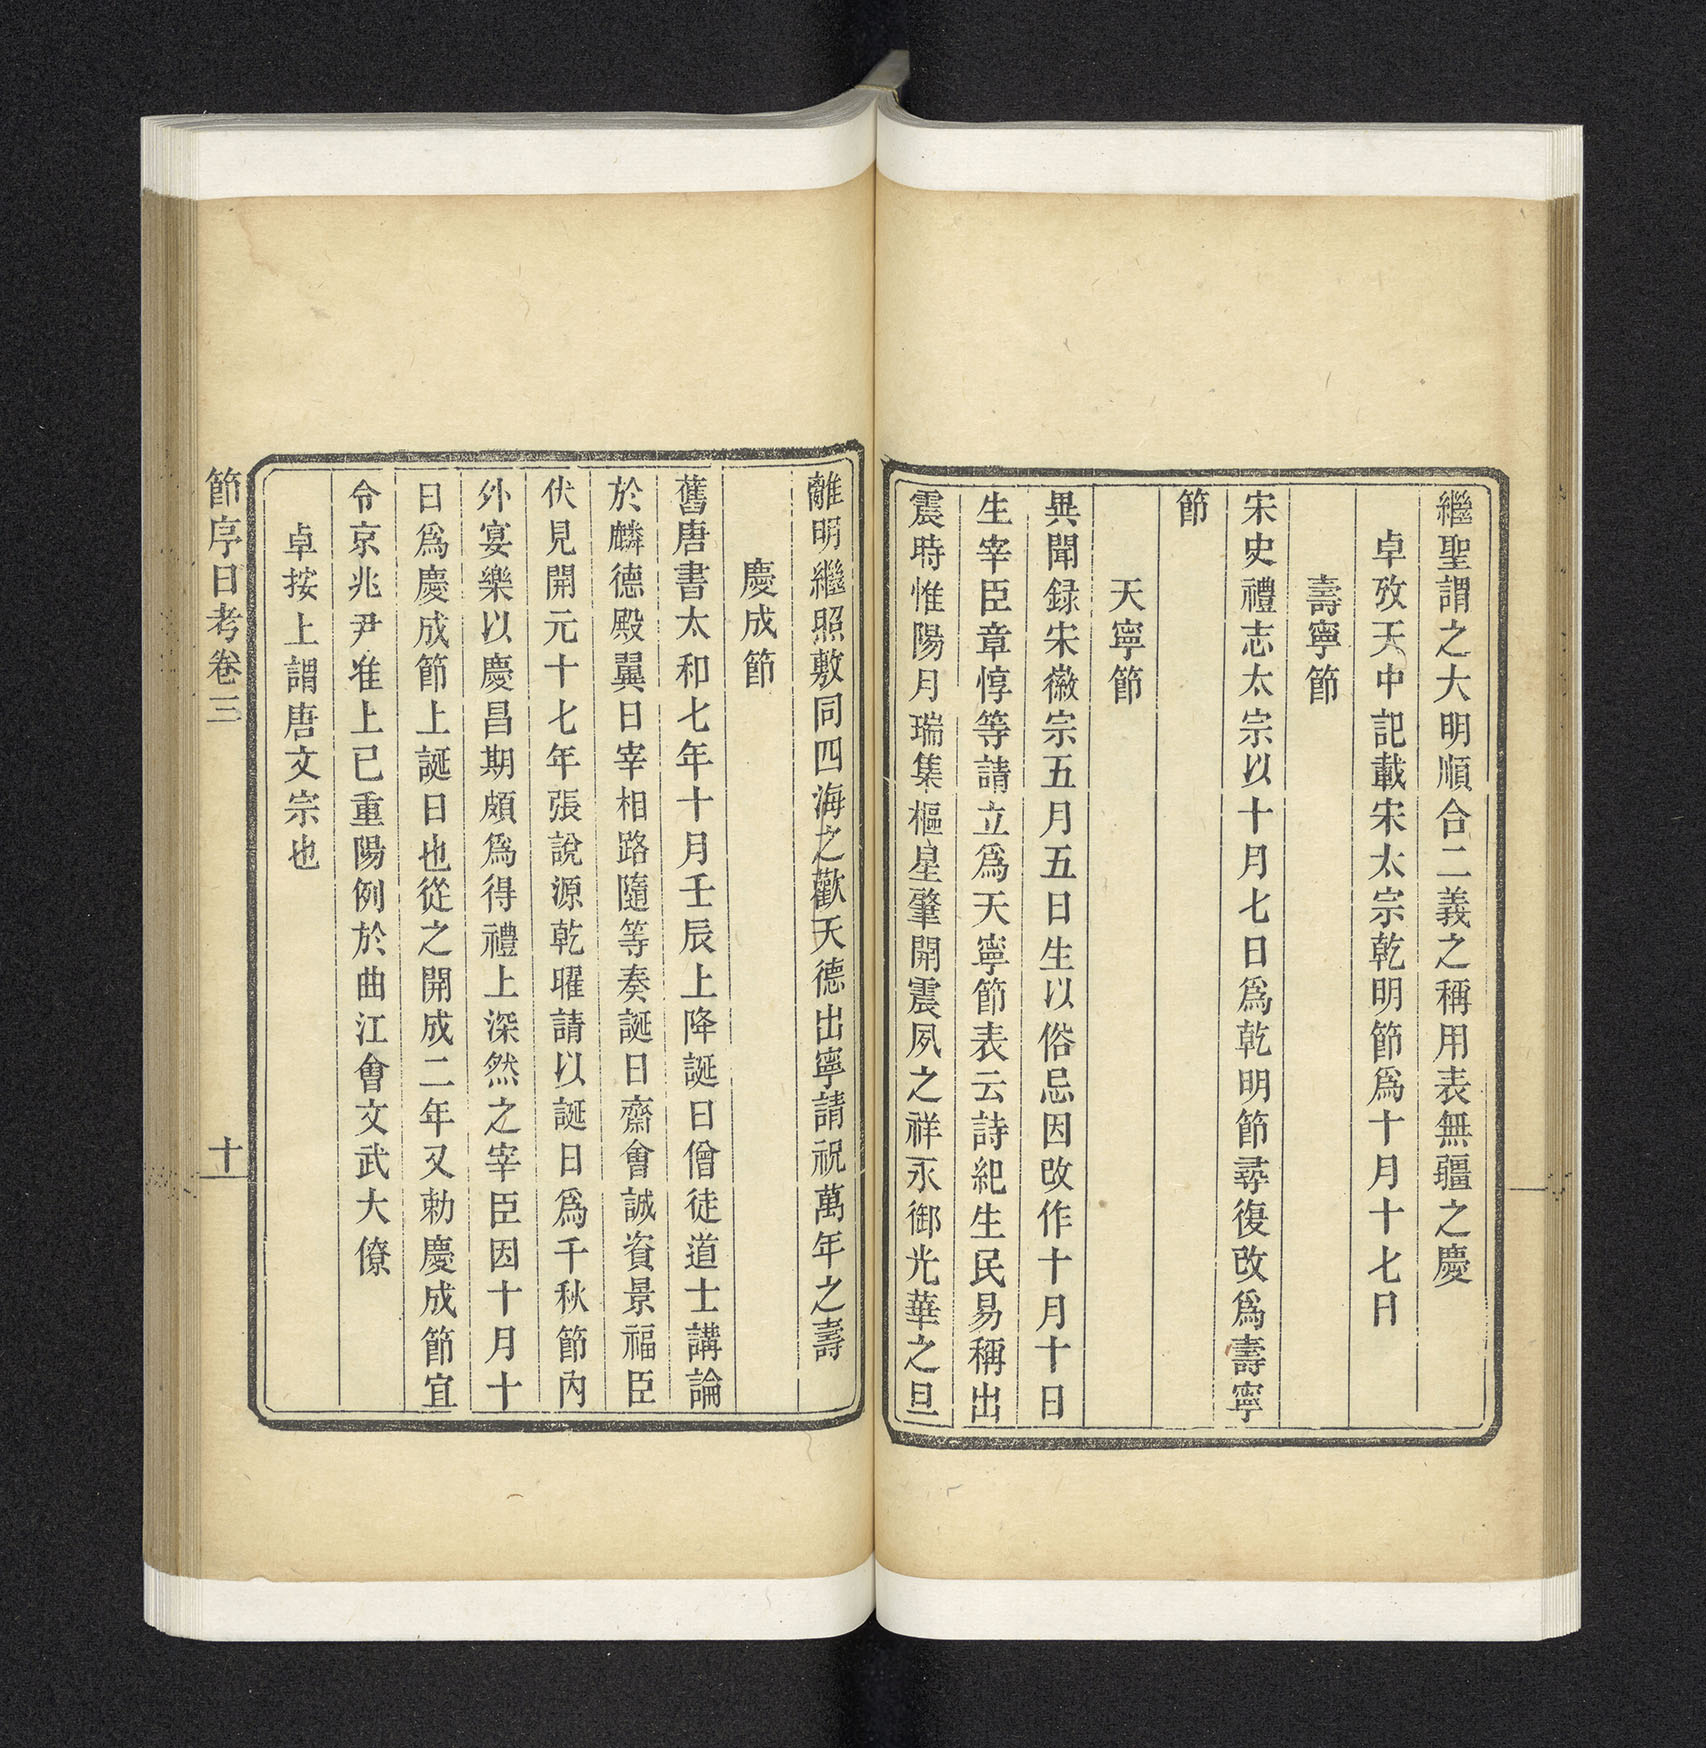 繼聖謂之大明順合二義之稱用表無疆之慶
卓攷天中記載宋太宗乾明節爲十月十七日
壽寧節
宋史禮志太宗以十月七日爲乾明節尋復改爲壽寧
節
天寧節
異聞録宋徽宗五月五日生以俗忌因改作十月十日
生宰臣章惇等請立爲天寧節表云詩紀生民易稱出
震時惟陽月瑞集樞星肇開震夙之祥永御光華之旦
離明繼照敷同四海之歡天德出寧請祝萬年之壽
慶成節
舊唐書太和七年十月壬辰上降誕日僧徒道士講論
於麟德殿翼日宰相路隨等奏誕日齋會誠資景福臣
伏見開元十七年張說源乾曜請以誕日爲千秋節內
外宴樂以慶昌期頗爲得禮上深然之宰臣因十月十
日爲慶成節上誕日也從之開成二年又勅慶成節宜
令京兆尹准上已重陽例於曲江會文武大僚
卓按上謂唐文宗也
節序日考卷三
十